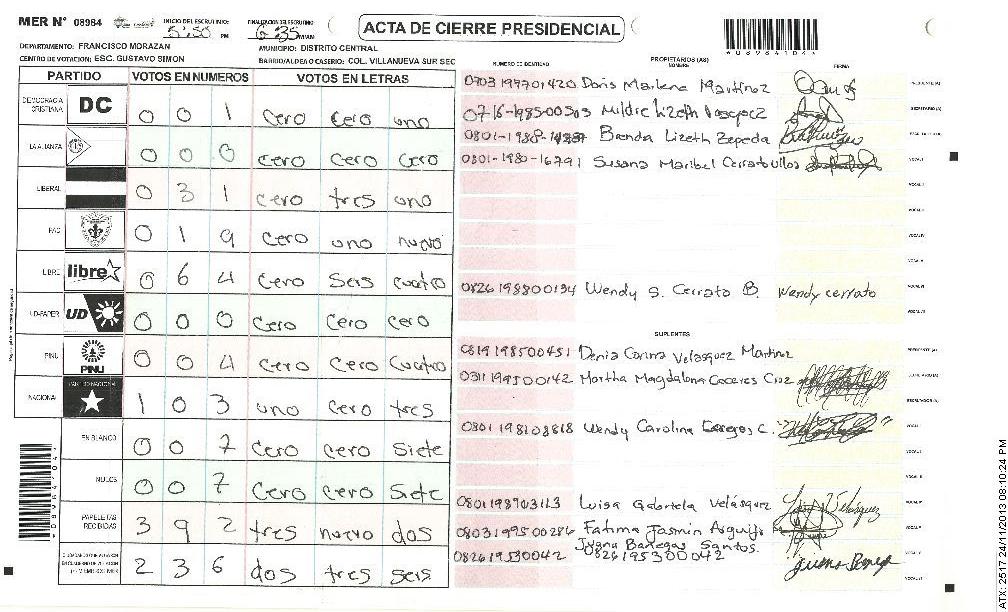 MER Nº 08984 INICIO DEL ESCRUTINIO: PM FINALIZACION DEL ESCRUTINIO 6:35 ACTA DE CIERRE PRESIDENCIAL
DEPARTAMENTO: FRANCISCO MORAZAN MUNICIPIO: DISTRITO CENTRAL
CENTRO DE VOTACION: ESC. GUSTAVO SIMON BARRIO/ALDEA O CASERIO: COL. VILLANUEVA SUR SEC
*08984104*
PARTIDO VOTOS EN NUMEROS VOTOS EN LETRAS
DEMOCRACIA CRISTIANA DC 0 0 1 cero cero uno
LA ALIANZA 0 0 0 cero cero cero
LIBERAL 0 3 1 cero tres uno
PAC 0 1 9 cero uno nuevo
LIBRE libre 0 6 4 cero seis cuatro
UD-FAPER UD 0 0 0 cero cero cero
PINU PINU 0 0 4 cero cero cuatro
NACIONAL PARTIDO NACIONAL 1 0 3 uno cero tres
EN BLANCO 0 0 7 cero cero siete
NULOS 0 0 7 cero cero siete
PAPELETAS RECIBIDAS 3 9 2 tres nuevo dos
2 3 6 dos tres seis
NUMERO DE IDENTIDAD PROPIETARIOS (AS) NOMBRE FIRMA
0703 199701420 Doris Marlena Martinez PRESIDENTE (A)
0716-1985-00503 Mildre Lizeth SECRETARIO (A)
0801-1988- Brenda Lizeth Zepeda ESCRUTADOR (A)
0801-1980-16791 Susana Maribel Cerrato Ullos VOCAL I
VOCAL II
VOCAL III
VOCAL IV
VOCAL V
0826198800134 Wendy S. Cerrato B. Wendy cerrato VOCAL VI
VOCAL VII
SUPLENTES
0819198500451 Denia Carina Velasquez Martinez PRESIDENTE (A)
0311199500142 Martha Magdalena Caceres Cruz SECRETARIO (A)
ESCRUTADOR (A)
0801198108818 Wendy Carolina C. VOCAL I
VOCAL II
VOCAL III
0801198903113 Luisa Gabriela Velásquez VOCAL IV
0803199500286 Fatima Jasmin VOCAL V
Juana Banegas Santos.
082619530042 0826195300042 VOCAL VI
VOCAL VII
ATX: 2517 24/11/2013 08:10:24 PM